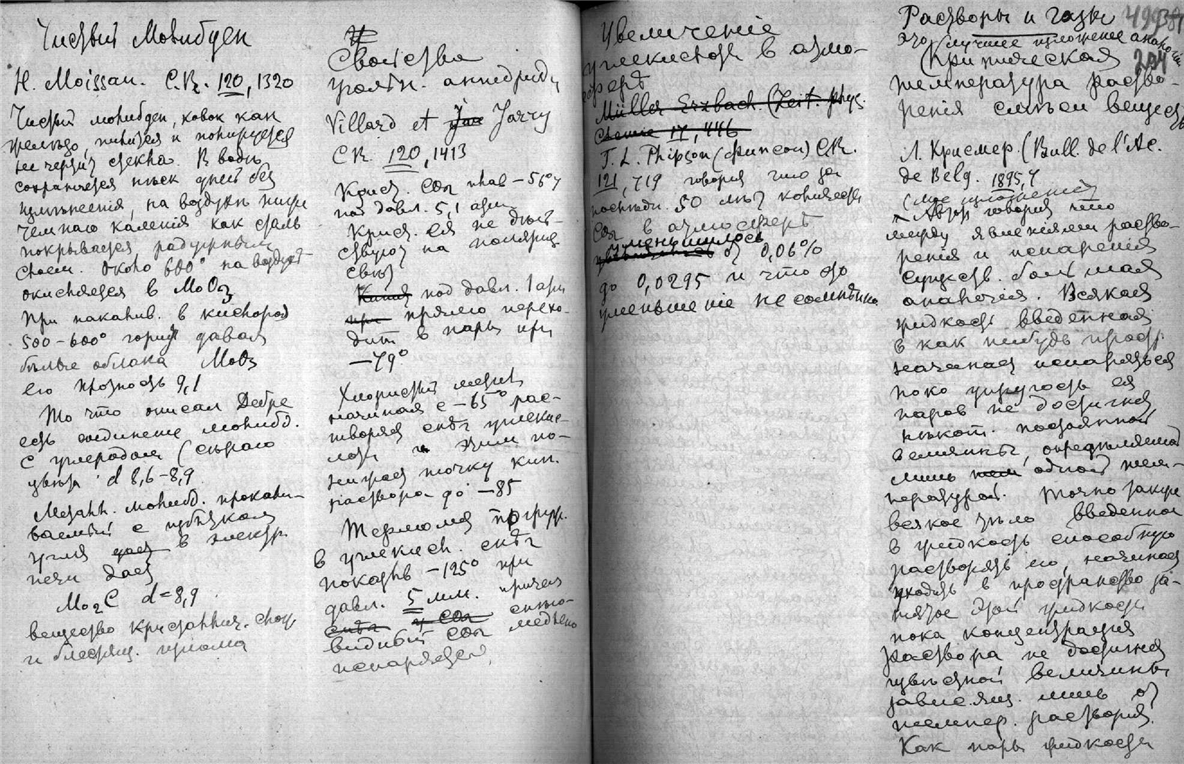 Чистый Молибден
H. Moissan. C.R. 120, 1320
Чистый молибден, ковок как
железо, пилится и полируется
не чертит стекла. В воде
сохраняется неск дней без
изменения, на воздухе ниже
темнаго каления как сталь
покрывается радужным
слоем. Около 600° на воздухе
окисляется в MoO3
При накалив. в кислород
500-600° горит давая
белые облака MoO3
его плотность 9,1
То что описал Дебре
есть соединение молибд.
с углеродом (сераго
цвета d 8,6-8,9
Металл. молибд. прокали-
ваемый с избытком
угля дает в электр.
печи дает
Mo2C d=8,9
вещество кристаллич.
и блестящ. излома
Свойства
угольн. ангидрида
Villard et Jarry
CR 120, 1413
Крист. CO2 плав -56°7
под давл. 5,1 атм
Крист. ея не дейс-
твуют на поляриз.
свет
под давл. 1 атм
при прямо перехо-
дит в пары при
-79°
Хлористый метил
начиная с -65° рас-
творяет снег углекис-
лоты и этим по-
нижает точку кип.
раствора до -85
Термометр погруж.
в углекисл. снег
показыв -125° при
давл. 5 мм. причем
снега и CO2
видимый CO2 медленно
испаряется.
Увеличение
углекислоты в атмо-
сфере
Müller Erzbach (Zeit. phys.
Chemie 17, 446
T. L. Phipson (Фипсон) CR.
121, 719 говорит что за
последн. 50 лет количест
CO2 в атмосфере
уменьшилось
от 0,06%
до 0,0295 и что это
уменьшение несомненно
Растворы и газы
это лучшее изложение аналог
204
Критическая
температура раство-
рения смеси веществ
Л. Крисмер (Bull. de l'Ac.
de Belg. 1895,
говорит что
между явлениями раство-
рения и испарения
существ. большая
аналогия. Всякая
жидкость введенная
в какое нибудь простр.
начинает испаряться
пока упругость ея
паров не достигнет
некот. постоянной
величины, определяемой
лишь одной тем-
пературой. Точно также
всякое тело введенное
в жидкость способную
растворять его, начинает
входить в пространство за-
нятое этой жидкости
пока концентрация
раствора не достигнет
известной величины
зависящ. лишь от
темпер. раствора.
Как пары жидкости